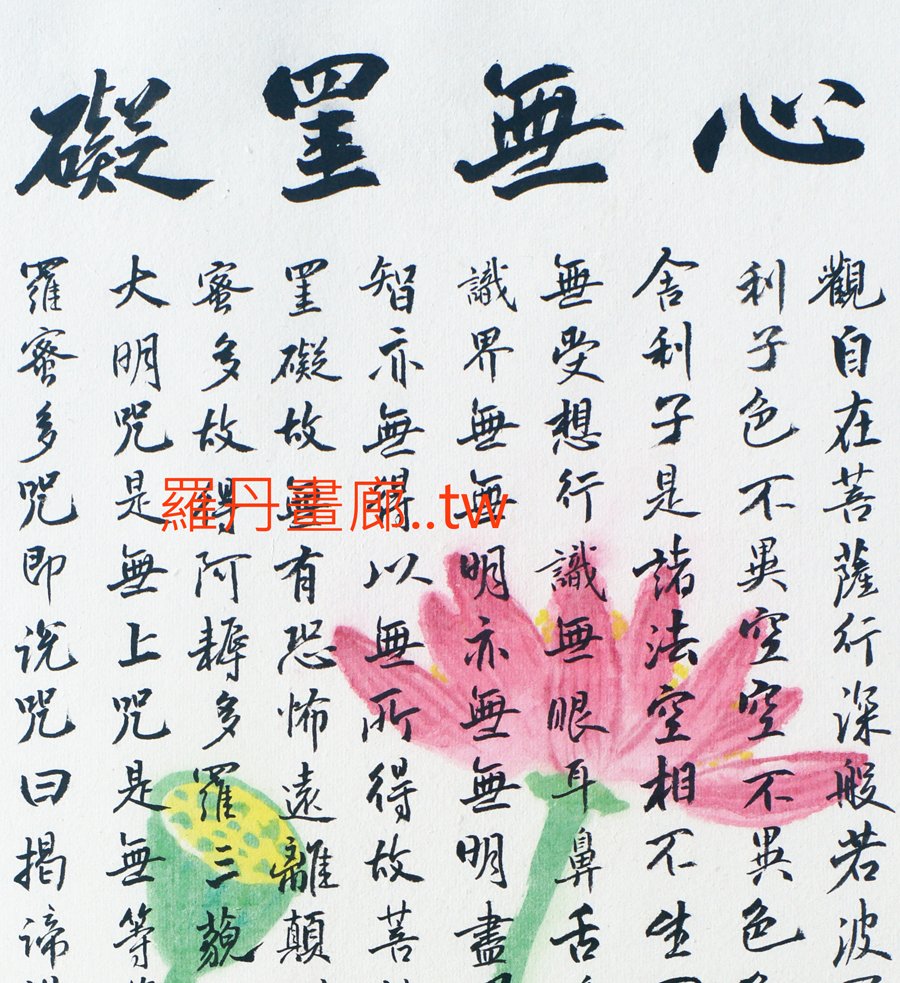 心無罣礙
觀自在菩薩行深般若波
利子色不異空空不異色
舍利子是諸法空相不生
無受想行識無眼耳鼻舌
識界無無明亦無無明盡
智亦無得以無所得故菩
罣礙故無有恐怖遠離顛
蜜多故得阿耨多羅三藐
大明咒是無上咒是無等
羅蜜多咒即說咒曰揭諦
羅丹畫廊..tw